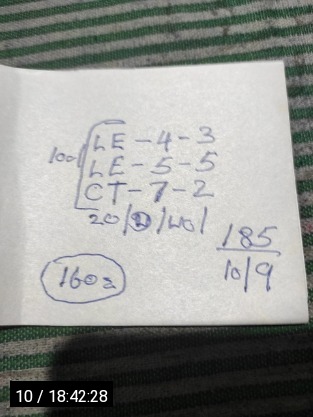 LE - 4 - 3
100 LE - 5 - 5
CT - 7 - 2
20/ /40/
185
10/9
160
10 / 18:42:28